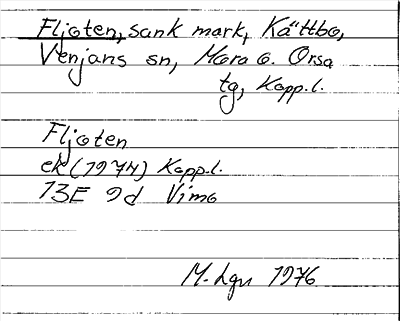 Fljoten, sank mark, Kättbo,
Venjans sn, Mora o. Orsa
tg, Kopp.l.
Fljoten
ek (1974) Kopp.l.
13E 9d Vimo
M. Lgn 1976